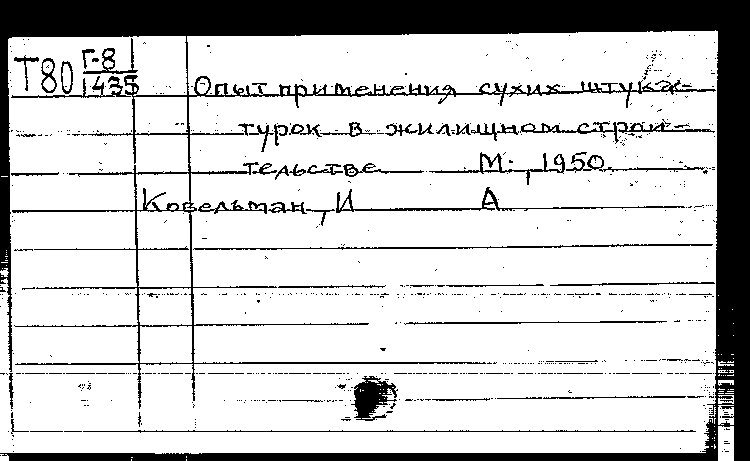 Т80 Г-8
1435
Опыт применения сухих штука-
турок в жилищном строи-
тельстве М., 1950.
Ковельман, И А